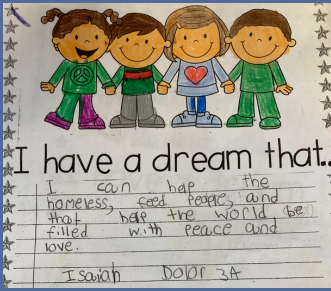 I have a dream that..
I can help the
homeless, feed people, and
that help the world be
filled with peace and
love.
Isaiah Dolor 3A